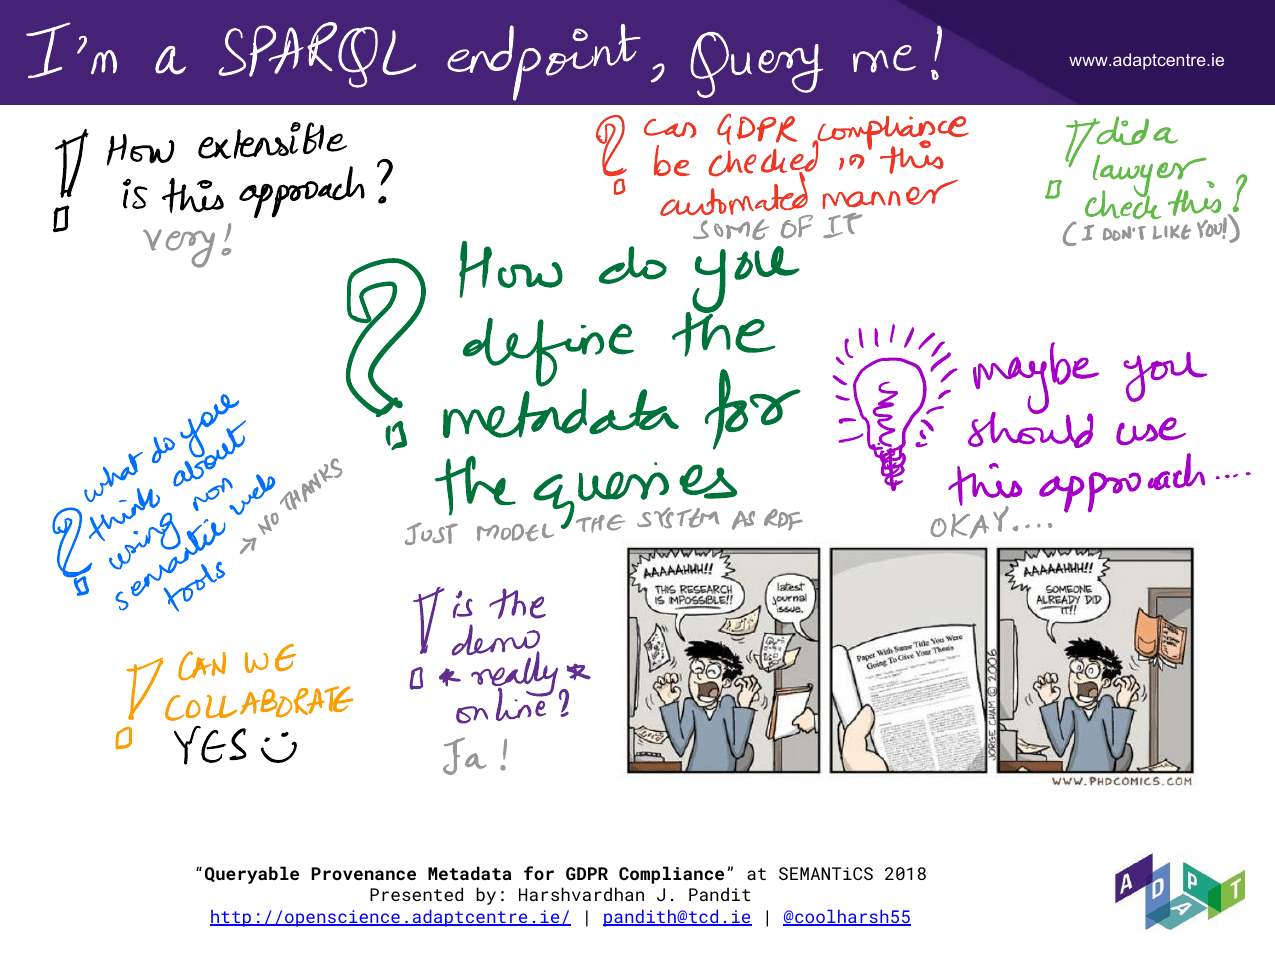 I'm a SPARQL endpoint, Query me!
www.adaptcentre.ie
How extensible
is this approach?
Very!
can GDPR compliance
be checked in this
automated manner
SOME OF IT
did a
lawyer
check this?
(I DON'T LIKE YOU!)
How do you
define the
metadata for
the queries
JUST MODEL THE SYSTEM AS RDF
maybe you
should use
this approach....
OKAY....
what do you
think about
using non
semantic web
tools
→ NO THANKS
CAN WE
COLLABORATE
YES
is the
demo
*really*
online?
Ja!
AAAAAHHH!!
THIS RESEARCH
IS IMPOSSIBLE!!
latest
journal
issue.
Paper With Same Title You Were
Going To Give Your Thesis
JORGE CHAM © 2006
AAAAAHHH!!
SOMEONE
ALREADY DID
IT!!
WWW.PHDCOMICS.COM
“Queryable Provenance Metadata for GDPR Compliance” at SEMANTiCS 2018
Presented by: Harshvardhan J. Pandit
http://openscience.adaptcentre.ie/ | pandith@tcd.ie | @coolharsh55
ADAPT